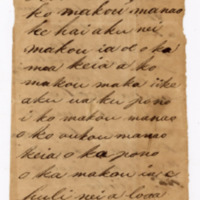 ko makou manao
ke hai aku nei
makou ia oe o ka
moa keia a ko
makou maka i ike
aku ua ku pono
i ko makou manao
o ko oukou manao
keia o ka pono
o ka makou ia e
huli nei a loaa